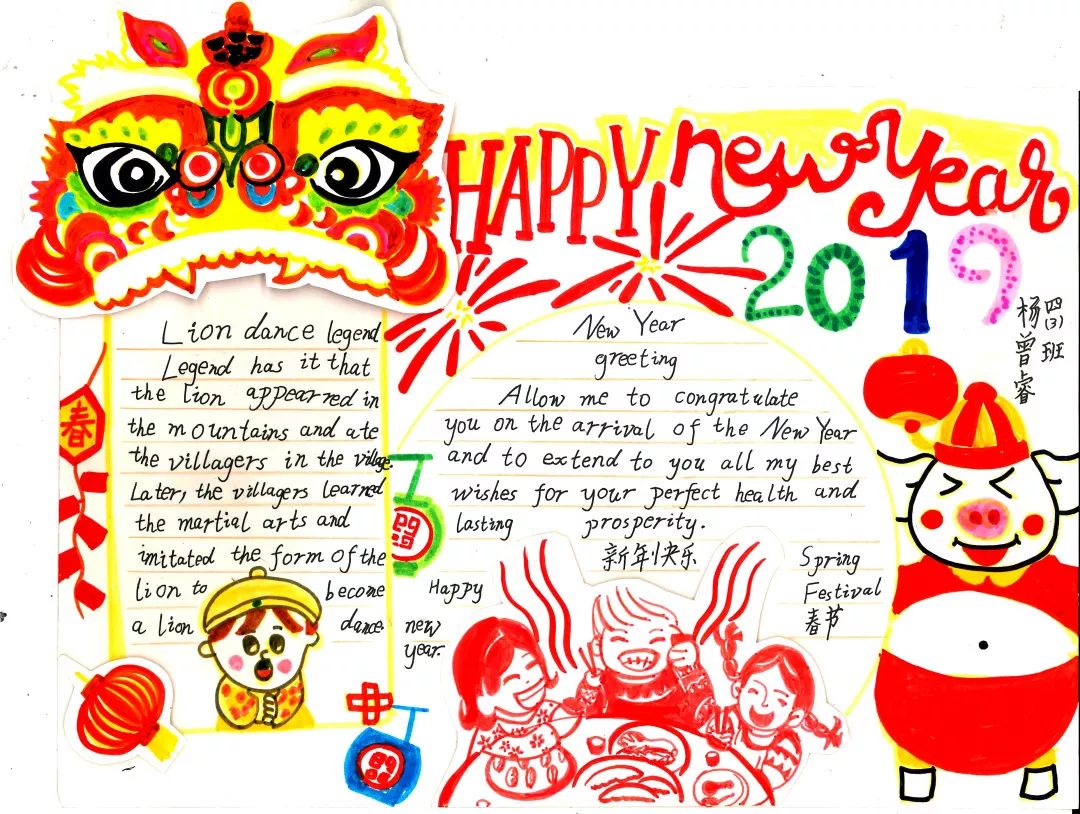 HAPPY new Year
2019
四(3)班
杨曾睿
Lion dance legend
Legend has it that
the lion appearred in
the mountains and ate
the villagers in the village.
Later, the villagers learned
the martial arts and
imitated the form of the
lion to become
a lion dance
春
New Year
greeting
Allow me to congratulate
you on the arrival of the New Year
and to extend to you all my best
wishes for your perfect health and
lasting prosperity.
新年快乐
Happy
new
year.
Spring
Festival
春节